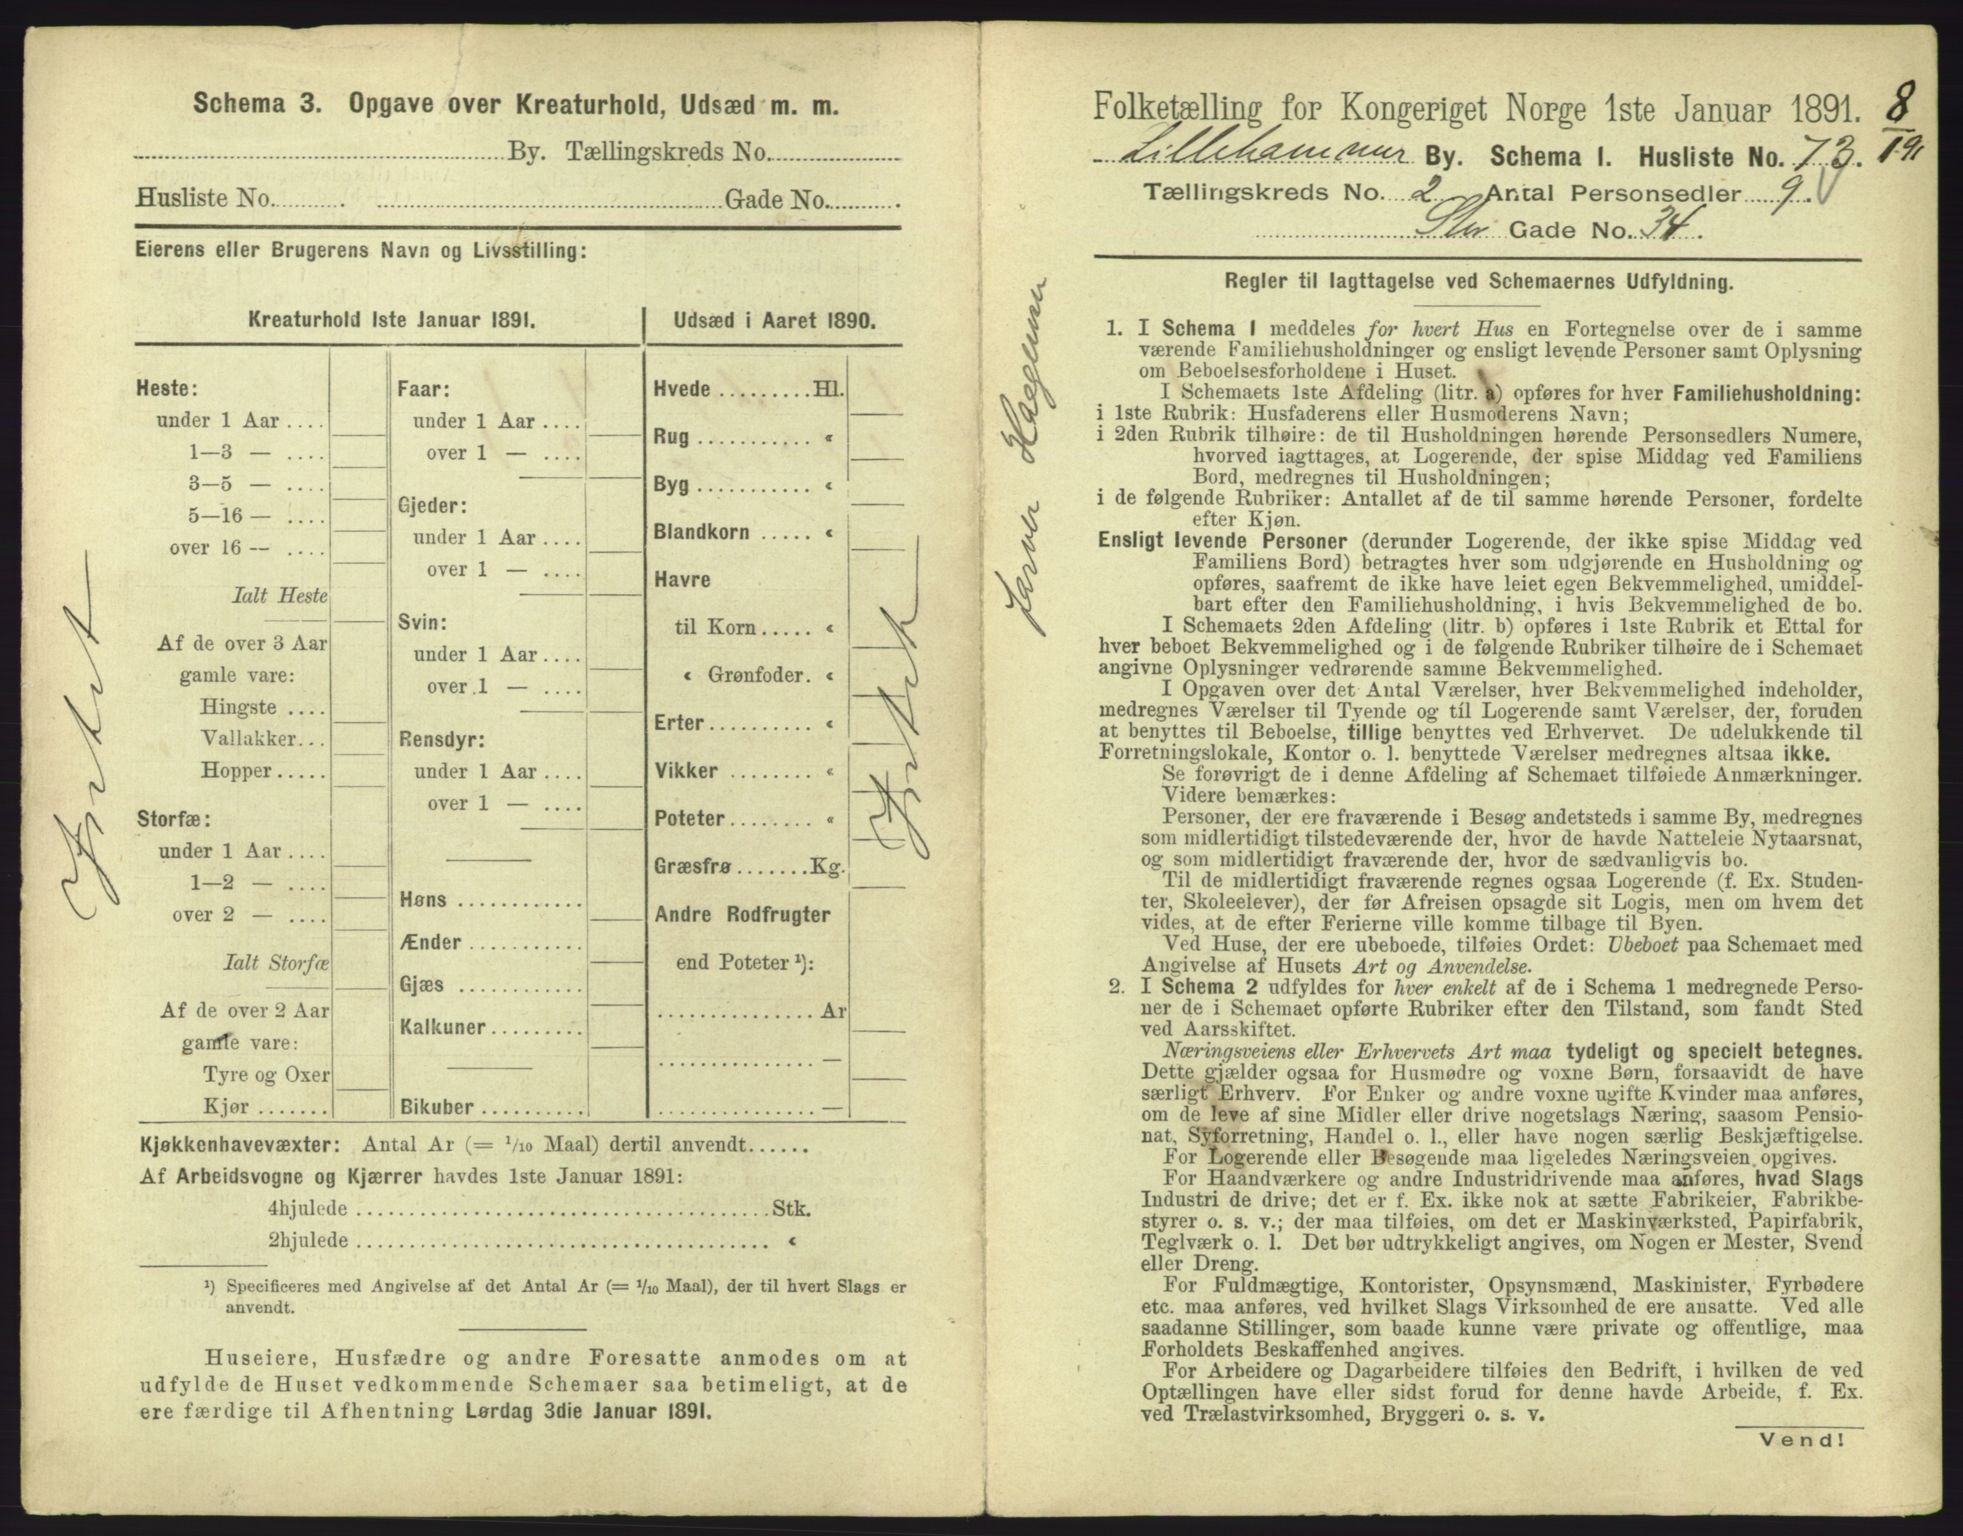 Schema 3. Opgave over Kreaturhold, Udsæd m. m.
By. Tællingskreds No.
Husliste No. Gade No.
Eierens eller Brugerens Navn og Livsstilling:
Kreaturhold 1ste Januar 1891.
Heste:
under 1 Aar ....
1—3 — ....
3—5 — ....
5—16 — ....
over 16 — ....
Ialt Heste
Af de over 3 Aar
gamle vare:
Hingste ....
Vallakker...
Hopper.....
Storfæ:
under 1 Aar....
1—2 — ....
over 2 — ....
Ialt Storfæ
Af de over 2 Aar
gamle vare:
Tyre og Oxer
Kjør .......
Faar:
under 1 Aar....
over 1 — ....
Gjeder:
under 1 Aar....
over 1 — ....
Svin:
under 1 Aar....
over 1 — ....
Rensdyr:
under 1 Aar....
over 1 — ....
Høns ............
Ænder ...........
Gjæs ............
Kalkuner.........
Bikuber ..........
Udsæd i Aaret 1890.
Hvede .........Hl.
Rug ........... «
Byg ........... «
Blandkorn ..... «
Havre
til Korn..... «
« Grønfoder. «
Erter.......... «
Vikker ........ «
Poteter........ «
Græsfrø.......Kg.
Andre Rodfrugter
end Poteter ¹):
............... Ar
............... —
............... —
Kjøkkenhavevæxter: Antal Ar (= 1/10 Maal) dertil anvendt......
Af Arbeidsvogne og Kjærrer havdes 1ste Januar 1891:
4hjulede ........................................ Stk.
2hjulede ........................................ «
¹) Specificeres med Angivelse af det Antal Ar (= 1/10 Maal), der til hvert Slags er
anvendt.
Huseiere, Husfædre og andre Foresatte anmodes om at
udfylde de Huset vedkommende Schemaer saa betimeligt, at de
ere færdige til Afhentning Lørdag 3die Januar 1891.
Folketælling for Kongeriget Norge 1ste Januar 1891.
8
I 91
Lillehammer By. Schema I. Husliste No. 73.
Tællingskreds No. 2 Antal Personsedler 9.
Stor Gade No. 34.
Regler til Iagttagelse ved Schemaernes Udfyldning.
1. I Schema 1 meddeles for hvert Hus en Fortegnelse over de i samme
værende Familiehusholdninger og ensligt levende Personer samt Oplysning
om Beboelsesforholdene i Huset.
I Schemaets 1ste Afdeling (litr. a) opføres for hver Familiehusholdning:
i 1ste Rubrik: Husfaderens eller Husmoderens Navn;
i 2den Rubrik tilhøire: de til Husholdningen hørende Personsedlers Numere,
hvorved iagttages, at Logerende, der spise Middag ved Familiens
Bord, medregnes til Husholdningen;
i de følgende Rubriker: Antallet af de til samme hørende Personer, fordelte
efter Kjøn.
Ensligt levende Personer (derunder Logerende, der ikke spise Middag ved
Familiens Bord) betragtes hver som udgjørende en Husholdning og
opføres, saafremt de ikke have leiet egen Bekvemmelighed, umiddel-
bart efter den Familiehusholdning, i hvis Bekvemmelighed de bo.
I Schemaets 2den Afdeling (litr. b) opføres i 1ste Rubrik et Ettal for
hver beboet Bekvemmelighed og i de følgende Rubriker tilhøire de i Schemaet
angivne Oplysninger vedrørende samme Bekvemmelighed.
I Opgaven over det Antal Værelser, hver Bekvemmelighed indeholder,
medregnes Værelser til Tyende og til Logerende samt Værelser, der, foruden
at benyttes til Beboelse, tillige benyttes ved Erhvervet. De udelukkende til
Forretningslokale, Kontor o. l. benyttede Værelser medregnes altsaa ikke.
Se forøvrigt de i denne Afdeling af Schemaet tilføiede Anmærkninger.
Videre bemærkes:
Personer, der ere fraværende i Besøg andetsteds i samme By, medregnes
som midlertidigt tilstedeværende der, hvor de havde Natteleie Nytaarsnat,
og som midlertidigt fraværende der, hvor de sædvanligvis bo.
Til de midlertidigt fraværende regnes ogsaa Logerende (f. Ex. Studen-
ter, Skoleelever), der før Afreisen opsagde sit Logis, men om hvem det
vides, at de efter Ferierne ville komme tilbage til Byen.
Ved Huse, der ere ubeboede, tilføies Ordet: Ubeboet paa Schemaet med
Angivelse af Husets Art og Anvendelse.
2. I Schema 2 udfyldes for hver enkelt af de i Schema 1 medregnede Perso-
ner de i Schemaet opførte Rubriker efter den Tilstand, som fandt Sted
ved Aarsskiftet.
Næringsveiens eller Erhvervets Art maa tydeligt og specielt betegnes.
Dette gjælder ogsaa for Husmødre og voxne Børn, forsaavidt de have
særligt Erhverv. For Enker og andre voxne ugifte Kvinder maa anføres,
om de leve af sine Midler eller drive nogetslags Næring, saasom Pensio-
nat, Syforretning, Handel o. l., eller have nogen særlig Beskjæftigelse.
For Logerende eller Besøgende maa ligeledes Næringsveien opgives.
For Haandværkere og andre Industridrivende maa anføres, hvad Slags
Industri de drive; det er f. Ex. ikke nok at sætte Fabrikeier, Fabrikbe-
styrer o. s. v.; der maa tilføies, om det er Maskinværksted, Papirfabrik,
Teglværk o. l. Det bør udtrykkeligt angives, om Nogen er Mester, Svend
eller Dreng.
For Fuldmægtige, Kontorister, Opsynsmænd, Maskinister, Fyrbødere
etc. maa anføres, ved hvilket Slags Virksomhed de ere ansatte. Ved alle
saadanne Stillinger, som baade kunne være private og offentlige, maa
Forholdets Beskaffenhed angives.
For Arbeidere og Dagarbeidere tilføies den Bedrift, i hvilken de ved
Optællingen have eller sidst forud for denne havde Arbeide, f. Ex.
ved Trælastvirksomhed, Bryggeri o. s. v.
Vend!